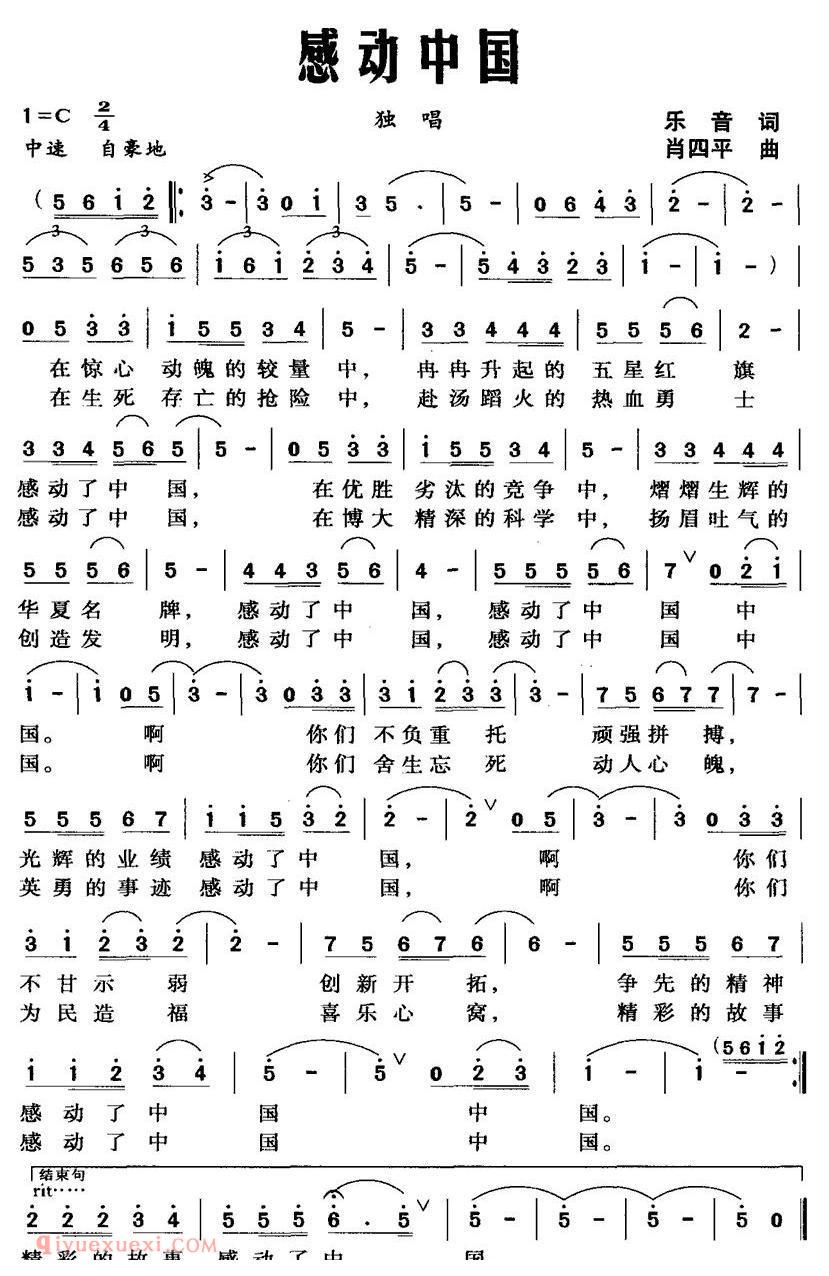 感动中国
1=C 2/4 独唱 乐音 词
中速 自豪地 肖四平 曲
( 5 6 1 2 ‖: 3 - | 3 0 1 | 3 5 . | 5 - | 0 6 4 3 | 2 - | 2 - |
5 3 5 6 5 6 | 1 6 1 2 3 4 | 5 - | 5 4 3 2 3 | 1 - | 1 - ) |
0 5 3 3 | 1 5 5 3 4 | 5 - | 3 3 4 4 4 | 5 5 5 6 | 2 - |
在惊心 动魄的较量 中, 冉冉升起的 五星红 旗
在生死 存亡的抢险 中, 赴汤蹈火的 热血勇 士
3 3 4 5 6 5 | 5 - | 0 5 3 3 | 1 5 5 3 4 | 5 - | 3 3 4 4 4 |
感动了中 国, 在优胜 劣汰的竞争 中, 熠熠生辉的
感动了中 国, 在博大 精深的科学 中, 扬眉吐气的
5 5 5 6 | 5 - | 4 4 3 5 6 | 4 - | 5 5 5 5 6 | 7 ∨ 0 2 1 |
华夏名 牌, 感动了中 国, 感动了中 国 中
创造发 明, 感动了中 国, 感动了中 国 中
1 - | 1 0 5 | 3 - | 3 0 3 3 | 3 1 2 3 3 | 3 - | 7 5 6 7 7 | 7 - |
国。 啊 你们 不负重 托 顽强拼 搏,
国。 啊 你们 舍生忘 死 动人心 魄,
5 5 5 6 7 | 1 1 5 3 2 | 2 - | 2 ∨ 0 5 | 3 - | 3 0 3 3 |
光辉的业绩 感动了中 国, 啊 你们
英勇的事迹 感动了中 国, 啊 你们
3 1 2 3 2 | 2 - | 7 5 6 7 6 | 6 - | 5 5 5 6 7 |
不甘示 弱 创新开 拓, 争先的精神
为民造 福 喜乐心 窝, 精彩的故事
1 1 2 3 4 | 5 - | 5 ∨ 0 2 3 | 1 - | 1 - (5 6 1 2 :‖
感动了中 国 中 国。
感动了中 国 中 国。
结束句
rit……
2 2 2 3 4 | 5 5 5 6 . 5 ∨ | 5 - | 5 - | 5 - | 5 0 ‖
qiyuexuexi.com
精彩的故事 感动了中 国